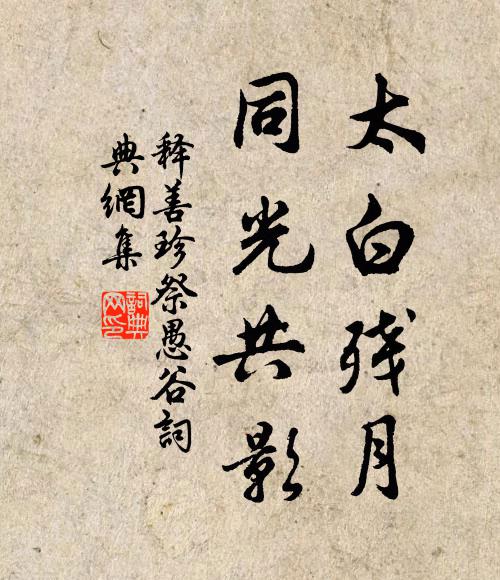 太白残月
同光共影
释善珍祭愚谷詞
典網集
詞典
网印